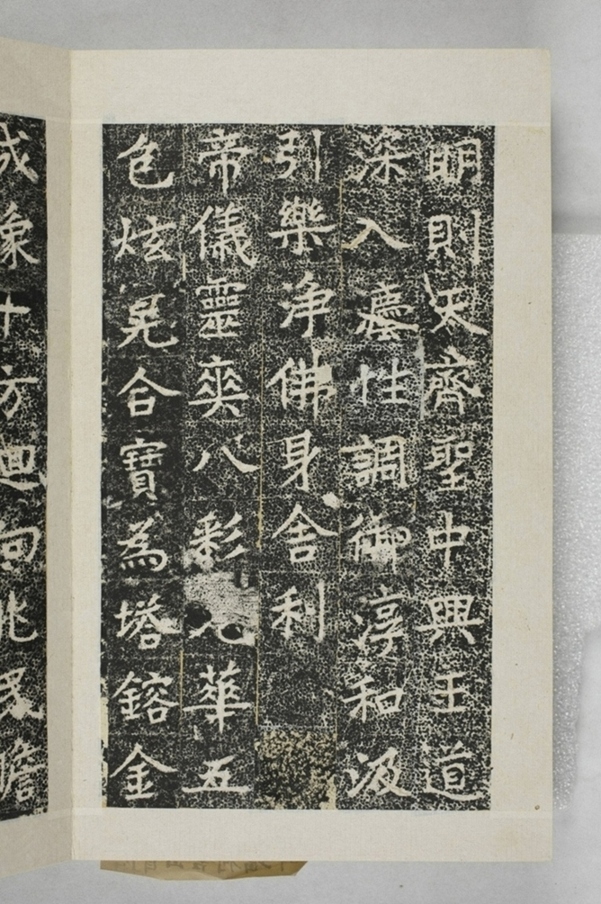 明則天齊聖中興王道
深入塵性調御淳和汲
引樂浄佛身舍利
帝儀靈爽八彩九華五
色炫晃合寶為塔鎔金
成像十方迴向兆民